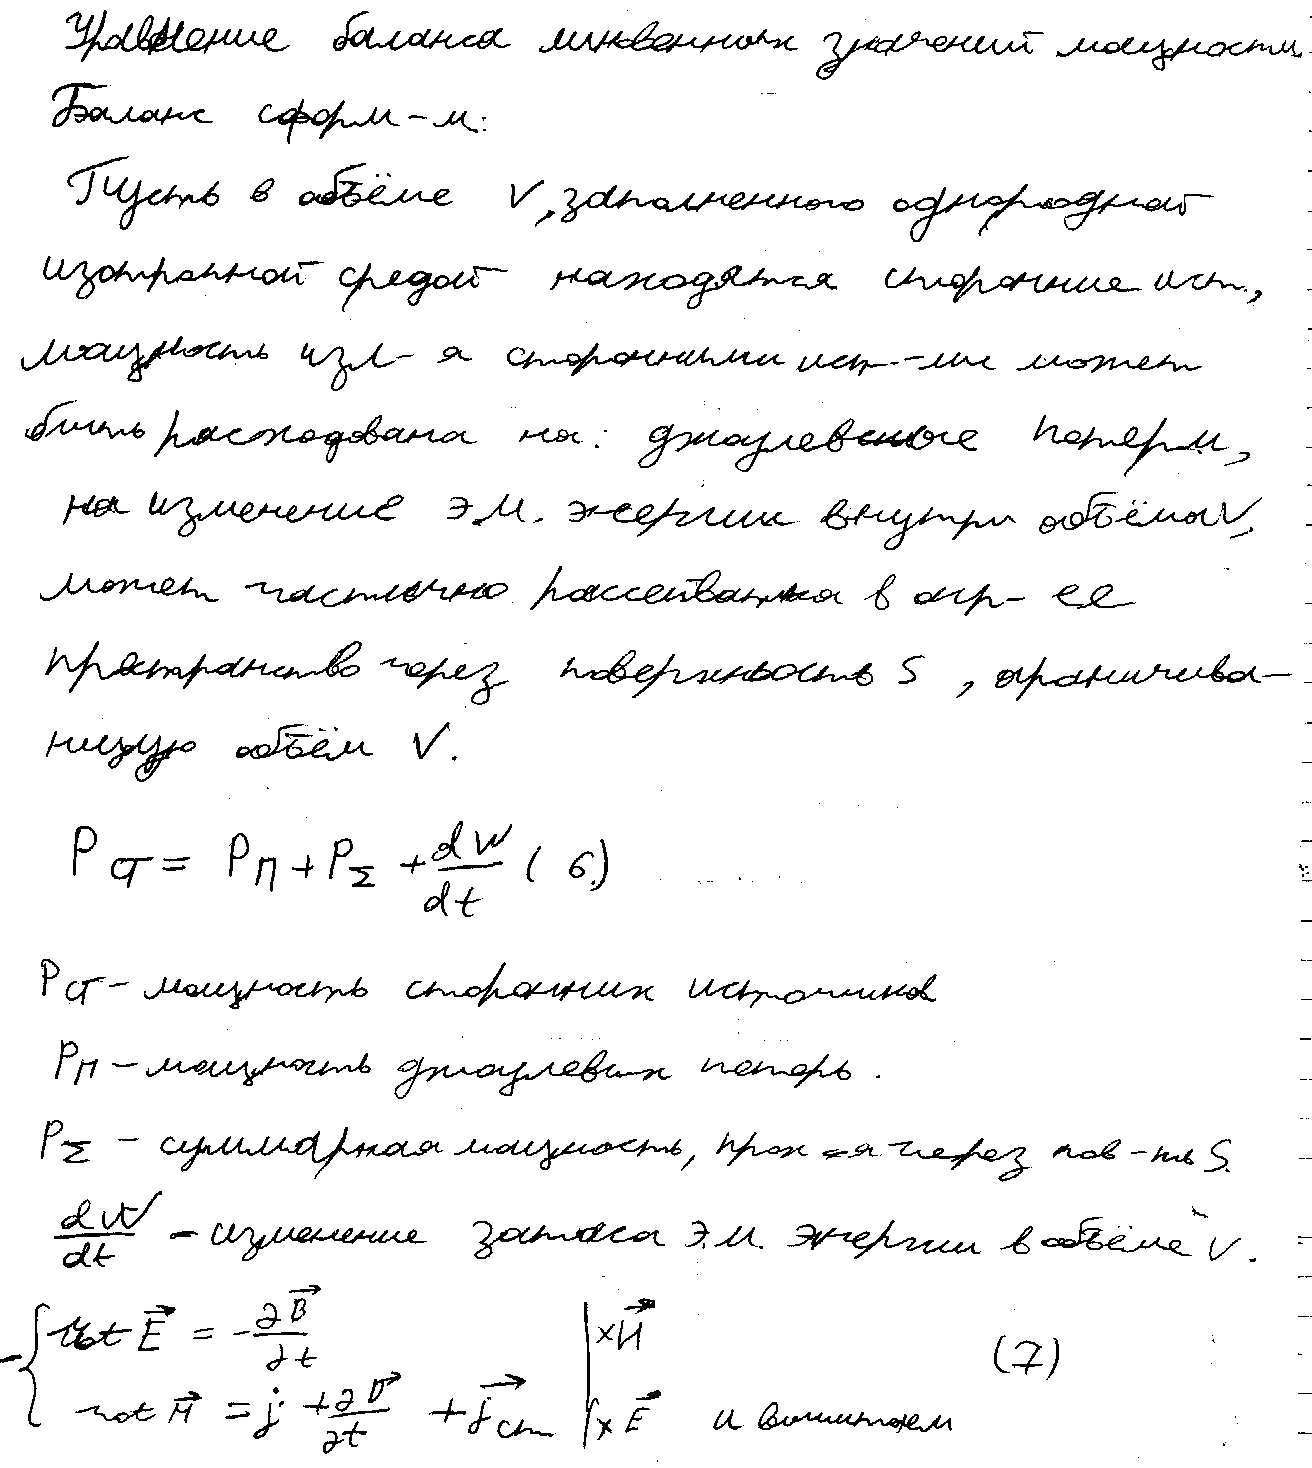 Уравнение баланса мгновенных значений мощности
Баланс сформ-м:
Пусть в объёме V, заполненного однородной
изотропной средой находятся сторонние ист.,
мощность изл-я сторонними ист-ми может
быть расходована на: джоулевские потери,
на изменение э.м. энергии внутри объёма V,
может частично рассеиваться в окр-ее
пространство через поверхность S, ограничива-
ющую объём V.
P ст = P п + P Σ + dW/dt (6)
P ст – мощность сторонних источников
P п – мощность джоулевых потерь.
P Σ – суммарная мощность, прох-я через пов-ть S.
dW/dt – изменение запаса э.м. энергии в объёме V.
rot E⃗ = -∂B⃗/∂t | ×H⃗
rot H⃗ = j + ∂D⃗/∂t + j⃗ ст | ×E⃗ и вычитаем (7)